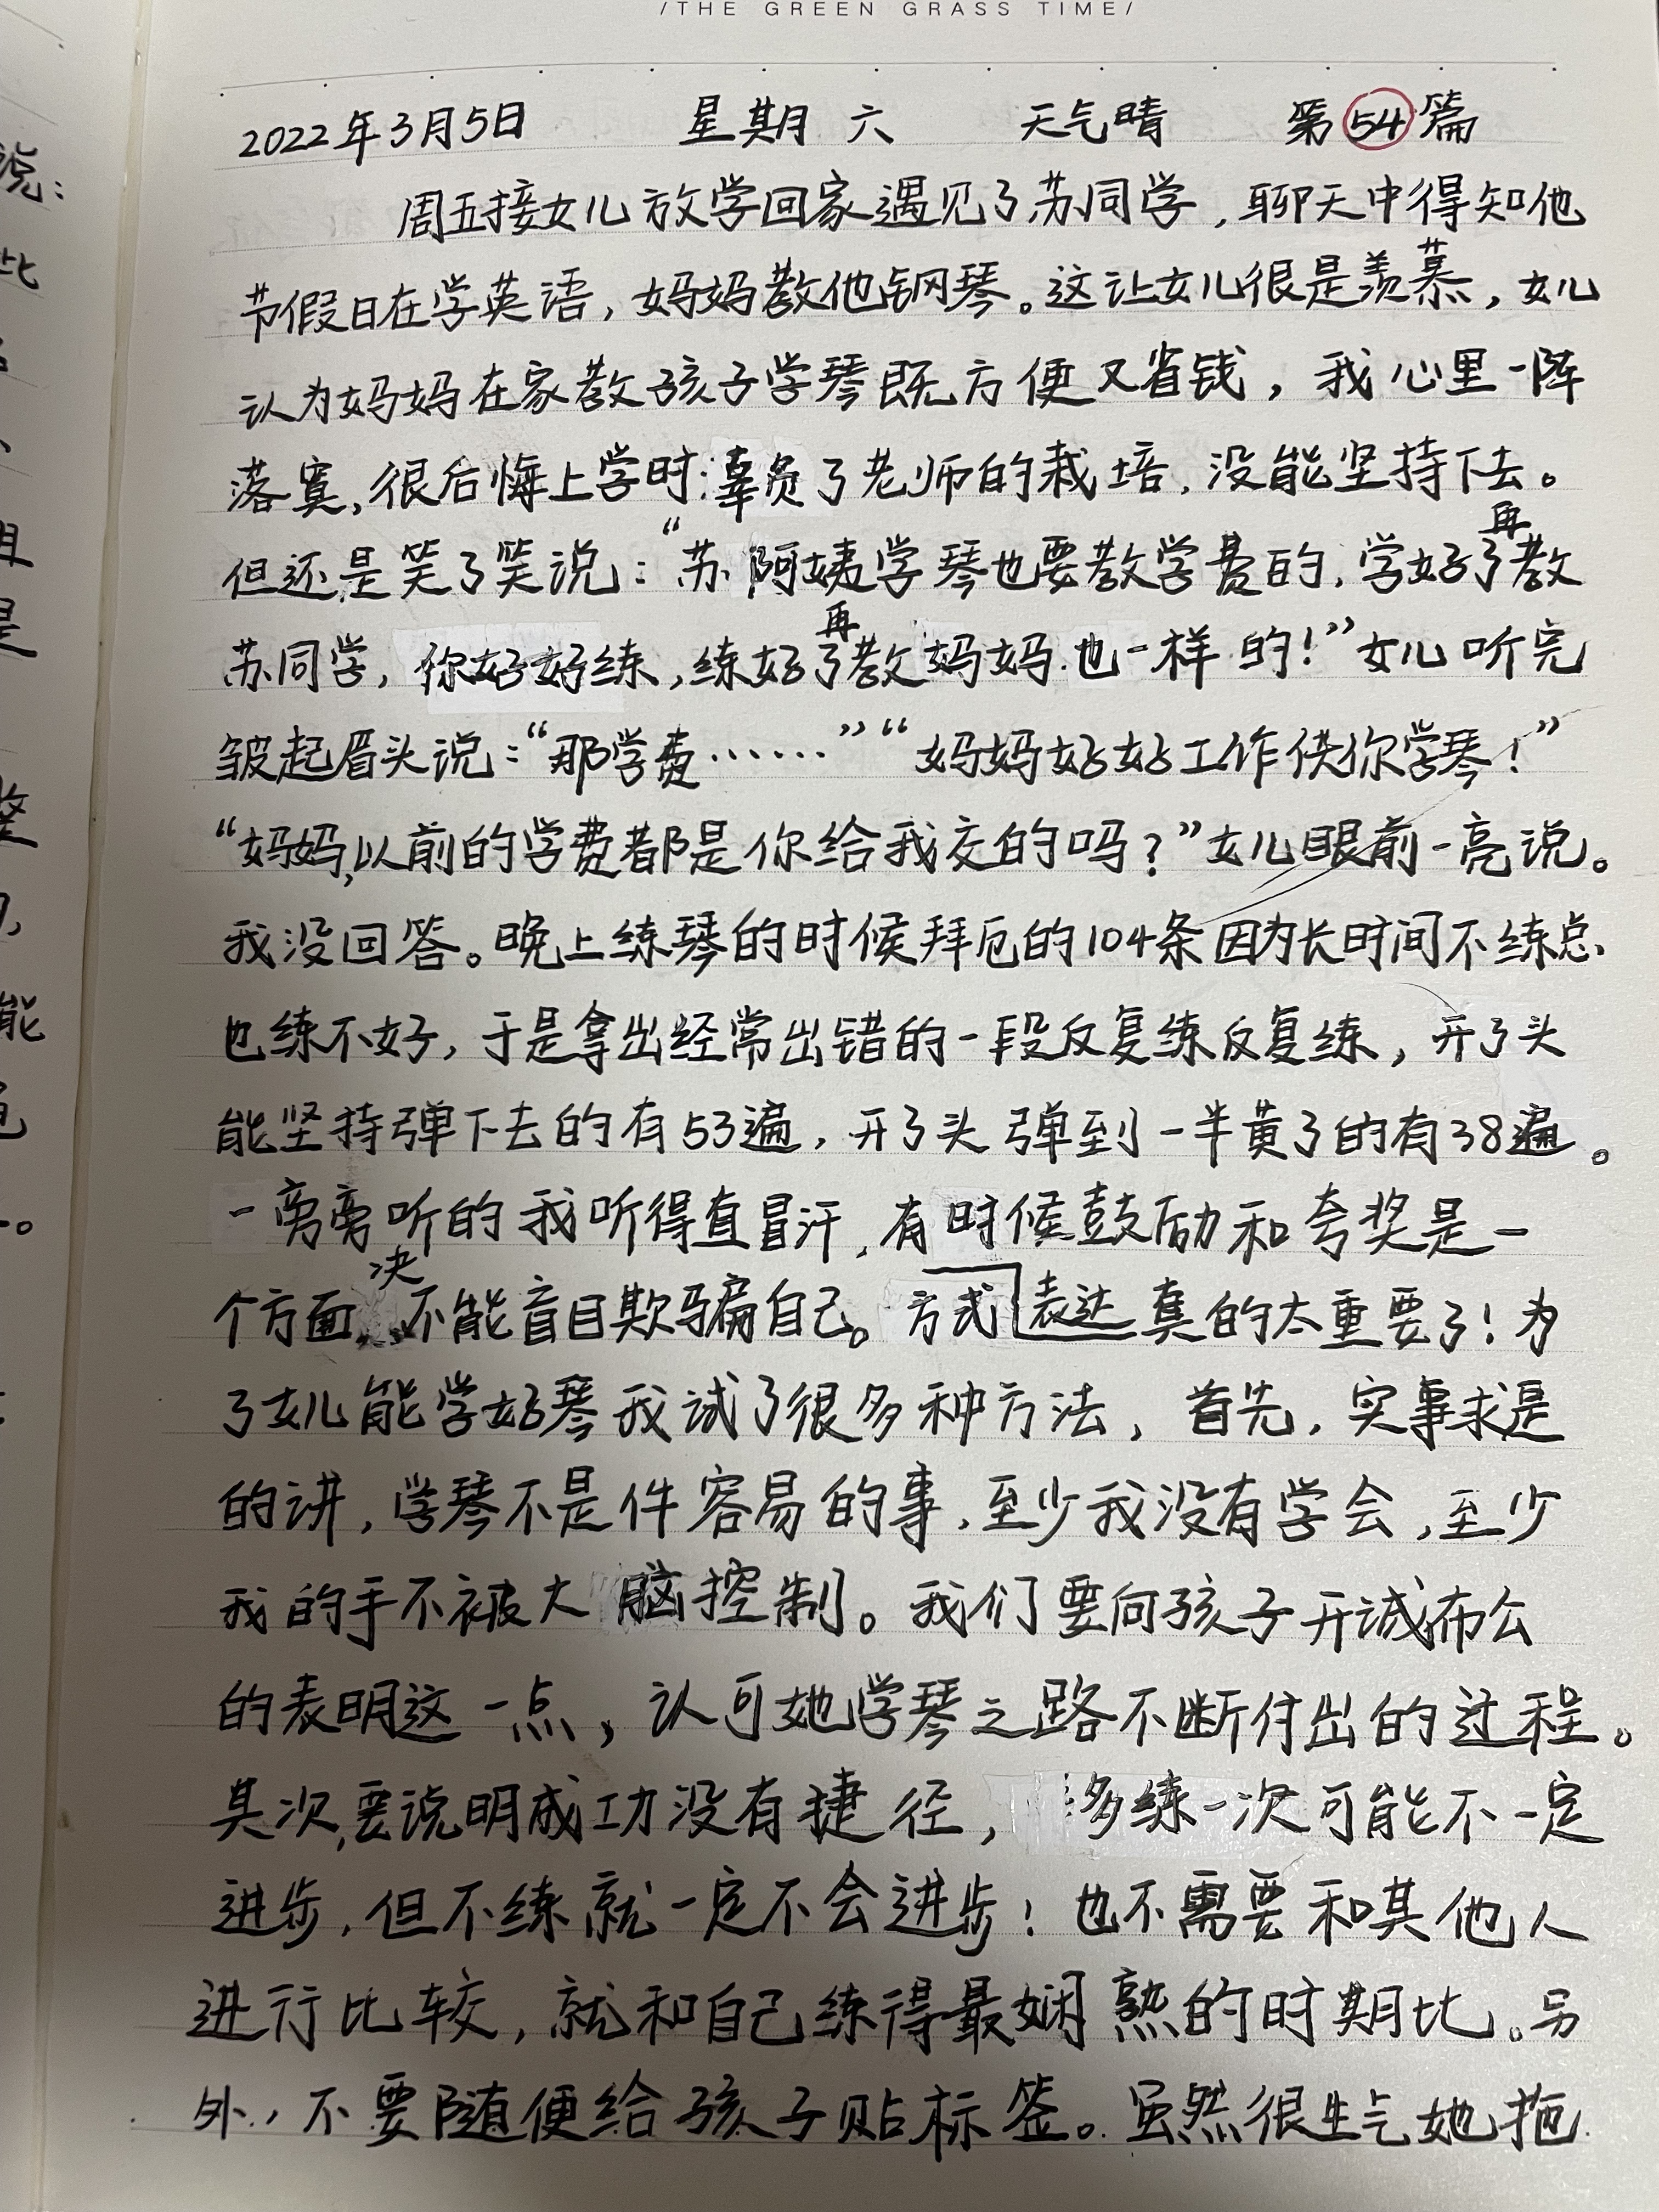 /THE GREEN GRASS TIME/
2022年3月5日 星期六 天气晴 第54篇
周五接女儿放学回家遇见了苏同学，聊天中得知他
节假日在学英语，妈妈教他钢琴。这让女儿很是羡慕，女儿
认为妈妈在家教孩子学琴既方便又省钱，我心里一阵
落寞，很后悔上学时辜负了老师的栽培，没能坚持下去。
但还是笑了笑说：“苏阿姨学琴也要教学费的，学好了再教
苏同学，你好好练，练好了再教妈妈也一样的！”女儿听完
皱起眉头说：“那学费……”“妈妈好好工作供你学琴！”
“妈妈，以前的学费都是你给我交的吗？”女儿眼前一亮说。
我没回答。晚上练琴的时候拜厄的104条因为长时间不练总
也练不好，于是拿出经常出错的一段反复练反复练，开了头
能坚持弹下去的有53遍，开了头弹到一半黄了的有38遍。
一旁旁听的我听得直冒汗，有时候鼓励和夸奖是一
个方面，决不能盲目欺骗自己。方式表达真的太重要了！为
了女儿能学好琴我试了很多种方法，首先，实事求是
的讲，学琴不是件容易的事，至少我没有学会，至少
我的手不被大脑控制。我们要向孩子开诚布公
的表明这一点，认可她学琴之路不断付出的过程。
其次，要说明成功没有捷径，多练一次可能不一定
进步，但不练就一定不会进步！也不需要和其他人
进行比较，就和自己练得最娴熟的时期比。另
外，不要随便给孩子贴标签。虽然很生气她拖